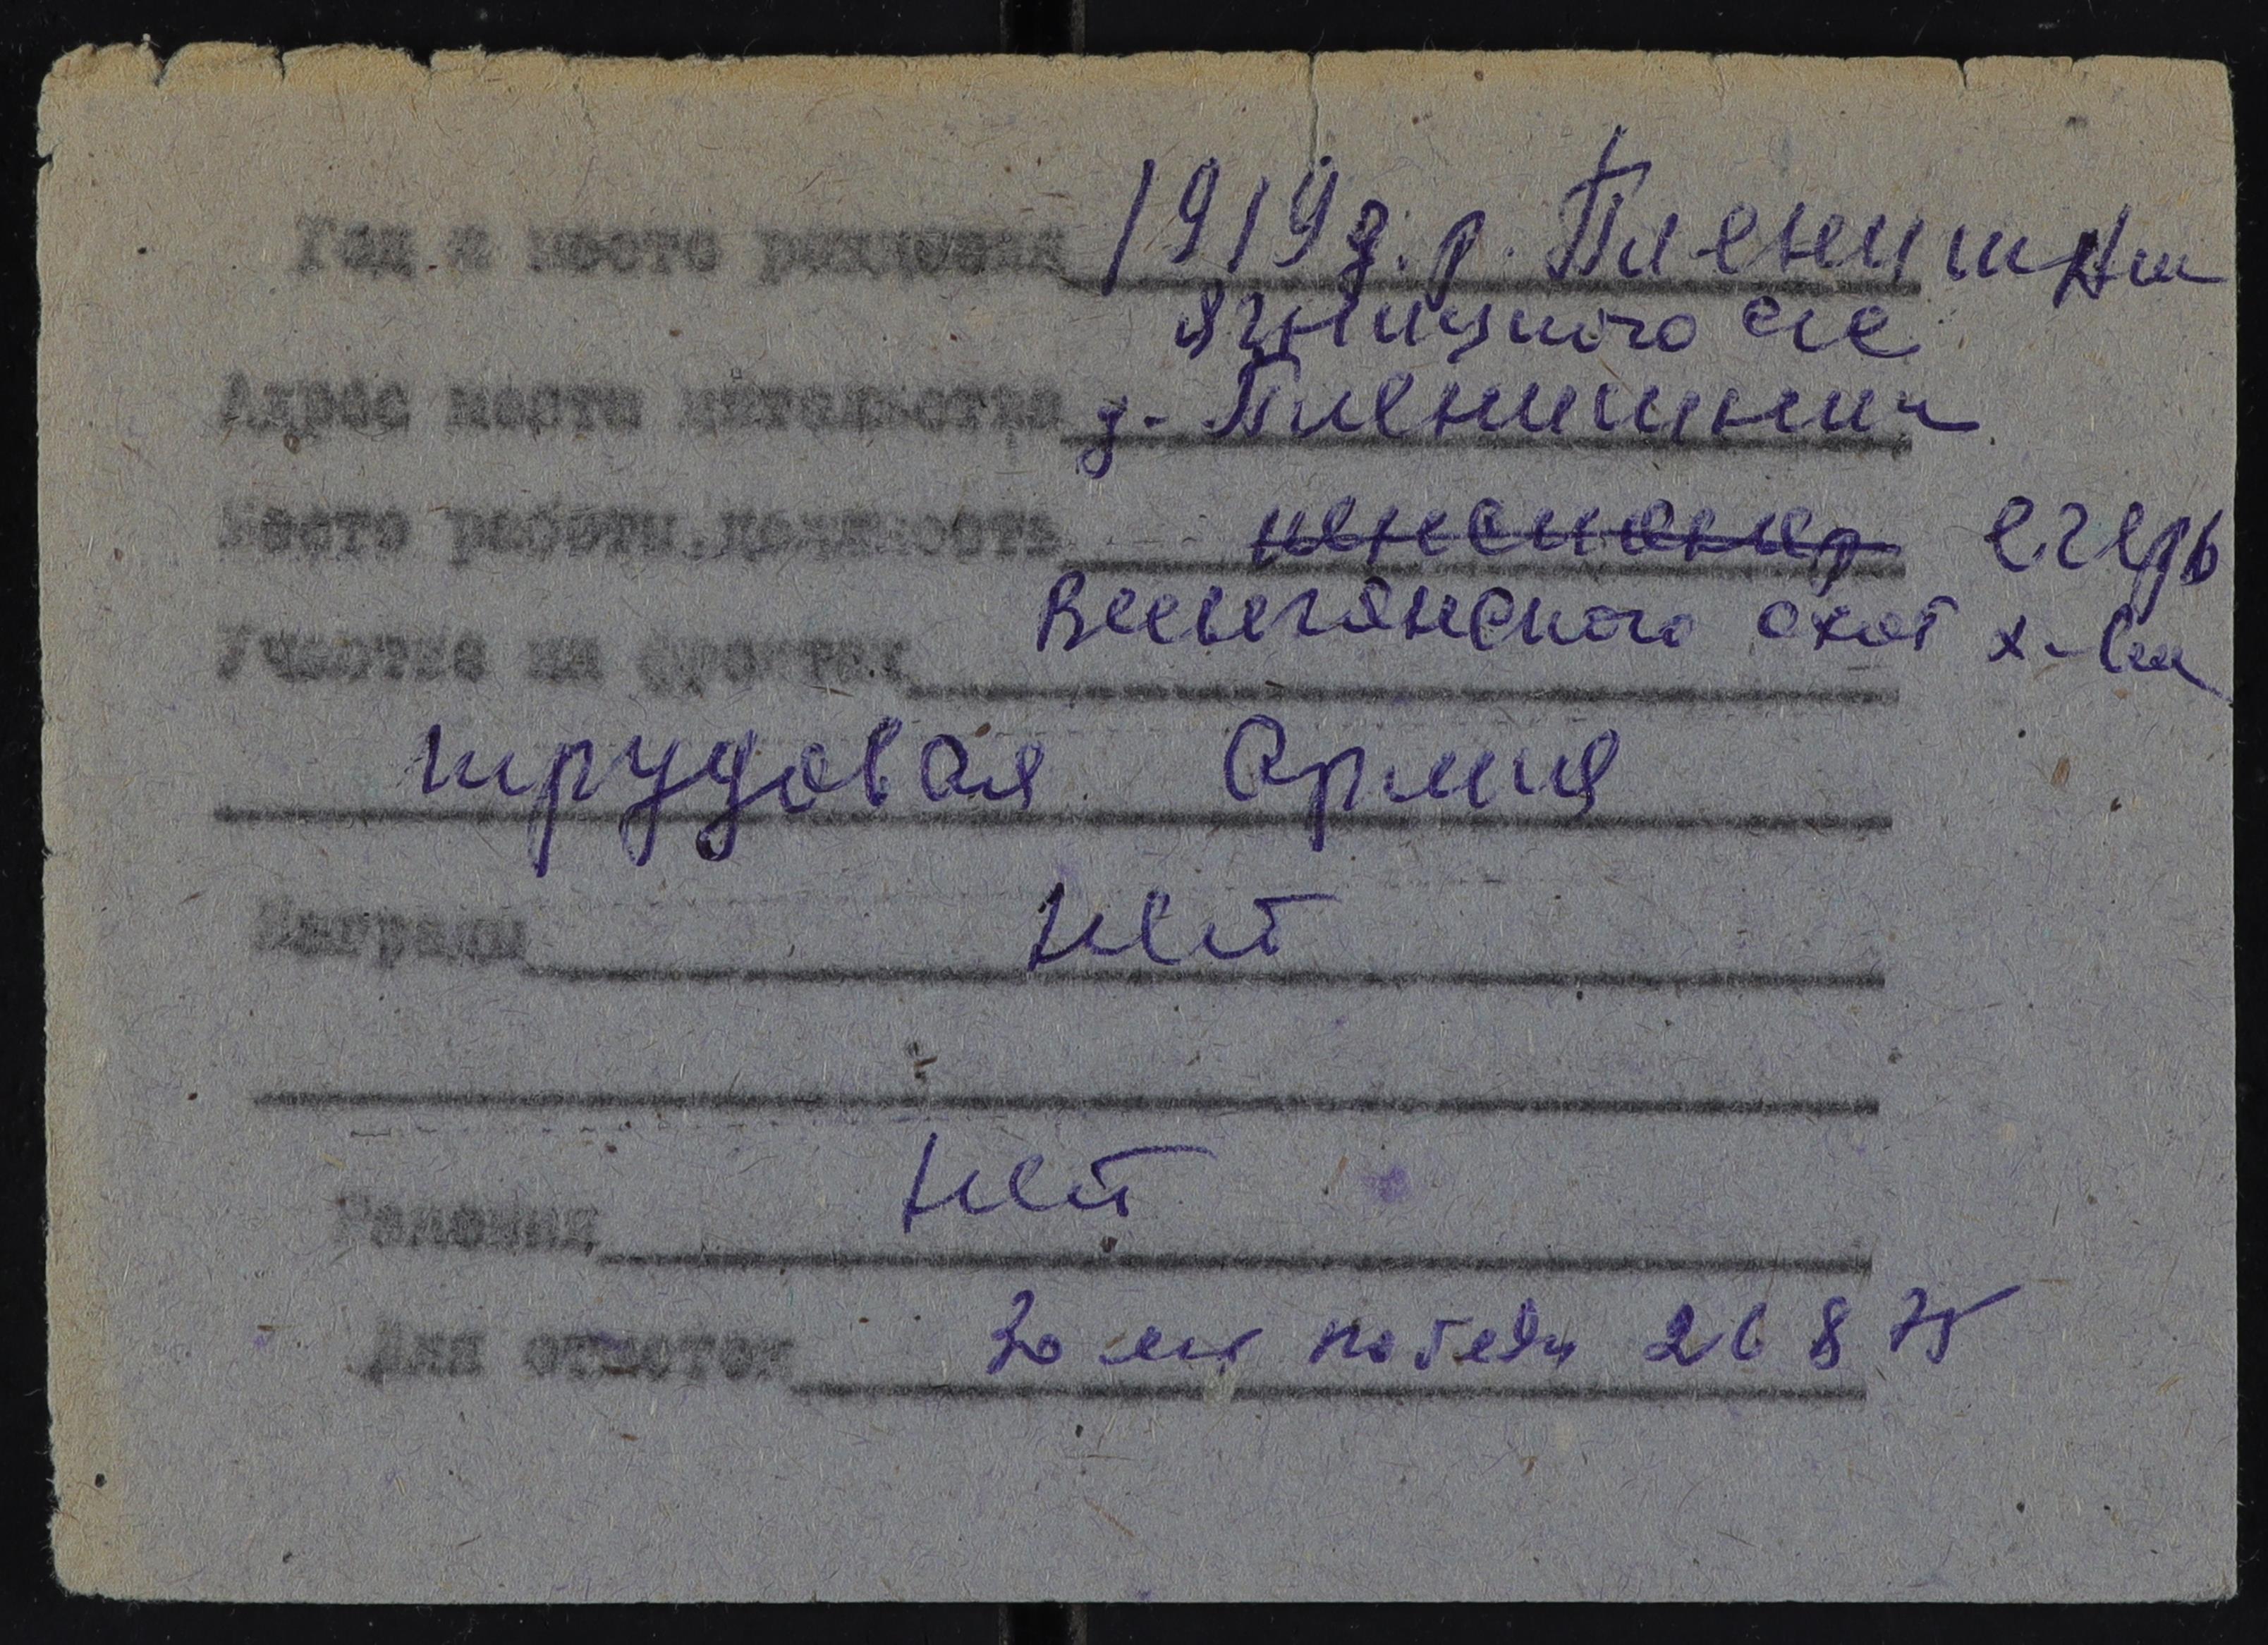 Год и место рождения 1919 г. р. Пленишни
Ягницкого с/с
Адрес места жительства д. Пленишник
Место работы, должность пенсионер егерь
Весьегонского охот х-ва
Участие на фронтах
трудовая Армия
Награды нет
нет
Ранения
Для отметок 30 лет победы 26 8 75